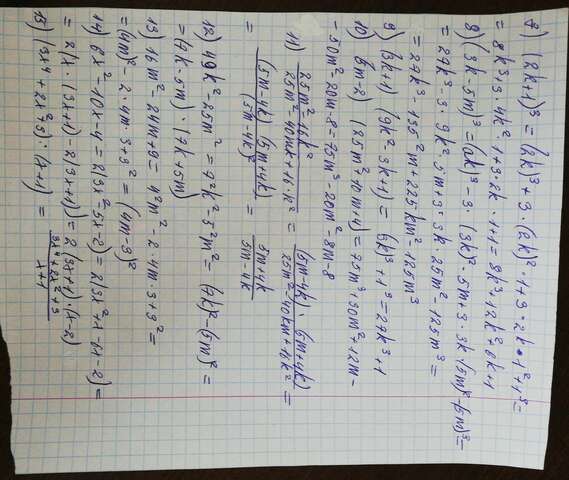 8) (2k+1)³ = (2k)³ + 3 · (2k)² · 1 + 3 · 2k · 1² + 1³ =
= 8k³ + 3 · 4k² · 1 + 3 · 2k · 1 + 1 = 8k³ + 12k² + 6k + 1
9) (3k - 5m)³ = (3k)³ - 3 · (3k)² · 5m + 3 · 3k · (5m)² - (5m)³ =
= 27k³ - 3 · 9k² · 5m + 3 · 3k · 25m² - 125m³ =
= 27k³ - 135k²m + 225km² - 125m³
9) (3k+1) (9k² - 3k + 1) = (3k)³ + 1³ = 27k³ + 1
10) (3m - 2) (25m² + 10m + 4) = 75m³ + 30m² + 12m -
- 50m² - 20m - 8 = 75m³ - 20m² - 8m - 8
11) (25m² - 16k²)/(25m² - 40mk + 16k²) = ((5m - 4k) · (5m + 4k))/(25m² - 40km + 16k²) =
= ((5m - 4k) (5m + 4k))/(5m - 4k)² = (5m + 4k)/(5m - 4k)
12) 49k² - 25m² = 7²k² - 5²m² = (7k)² - (5m)² =
= (7k - 5m) · (7k + 5m)
13) 16m² - 24m + 9 = 4²m² - 2 · 4m · 3 + 3² =
= (4m)² - 2 · 4m · 3 + 3² = (4m - 3)²
14) 6x² - 10x - 4 = 2(3x² - 5x - 2) = 2(3x² + x - 6x - 2) =
= 2(x · (3x+1) - 2(3x+1)) = 2(3x+1) · (x-2)
15) (3x⁴ + 2x² + 3) : (x+1) = (3x⁴ + 2x² + 3)/(x+1)